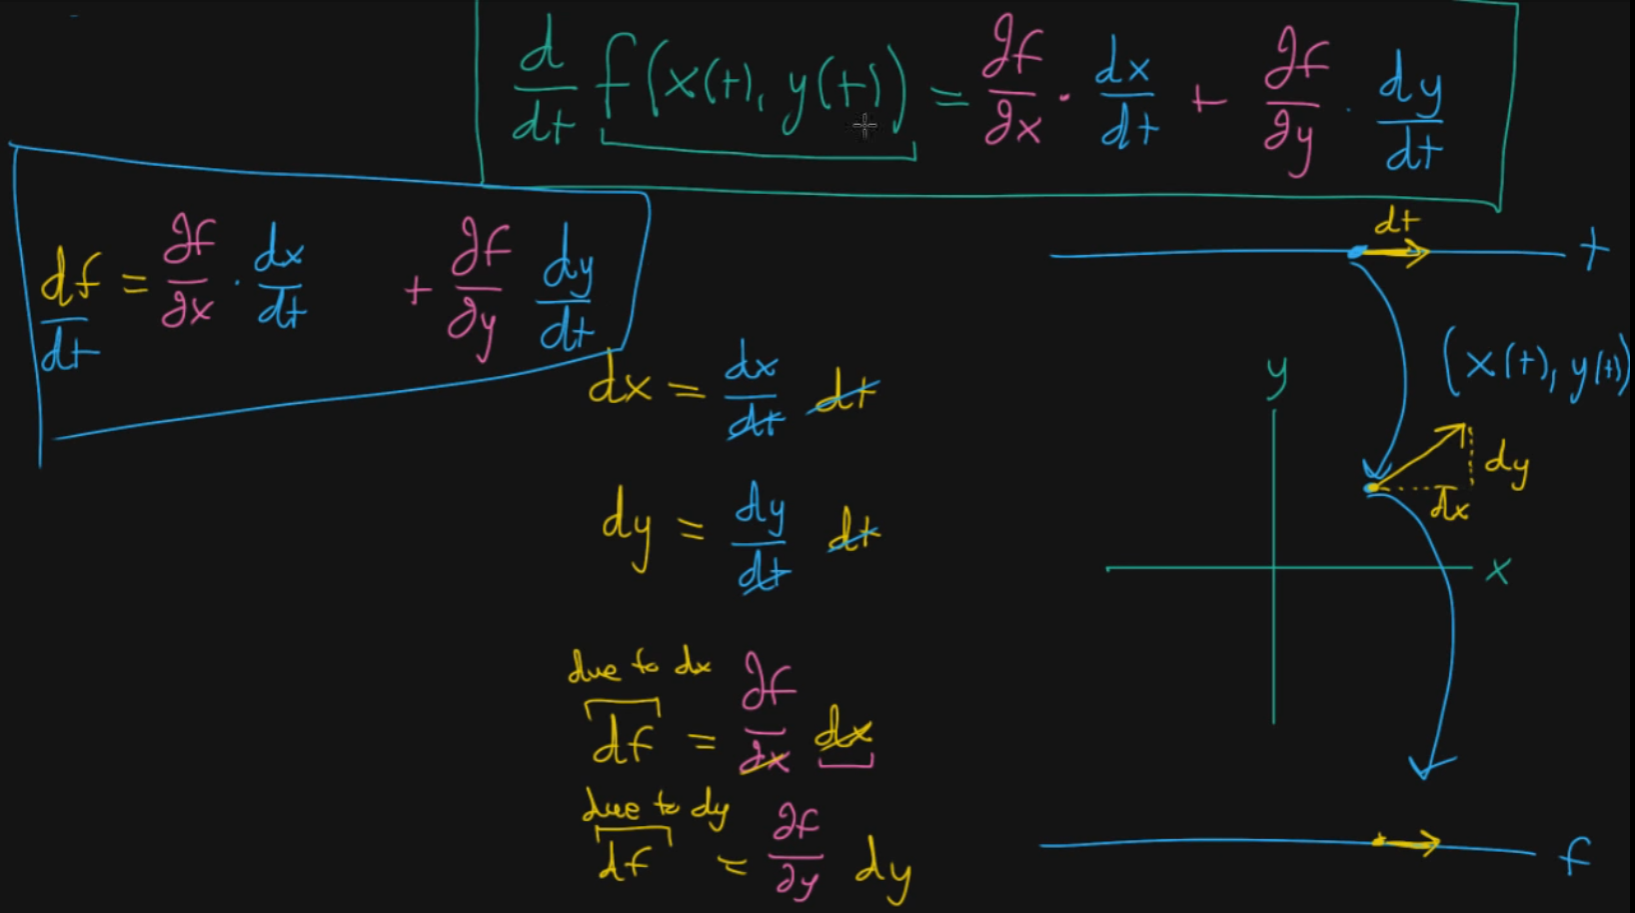 d/dt f(x(t), y(t)) = ∂f/∂x · dx/dt + ∂f/∂y · dy/dt
df/dt = ∂f/∂x · dx/dt + ∂f/∂y dy/dt
dx = dx/dt dt
dy = dy/dt dt
due to dx
df = ∂f/∂x dx
due to dy
df = ∂f/∂y dy
dt
t
(x(t), y(t))
y
dy
dx
x
f